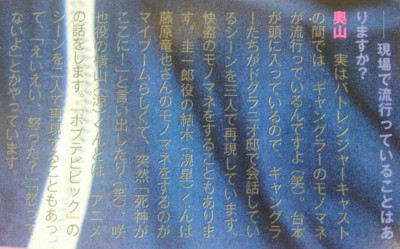 ――現場で流行っていることはあ
りますか?
奥山 実はパトレンジャーキャスト
の間では、ギャングラーのモノマネ
が流行っているんですよ(笑)。台本
が頭に入っているので、ギャングラ
ーたちがドグラニオ邸で会話してい
るシーンを三人で再現しています。
快盗のモノマネをすることもありま
す。圭一郎役の結木(滉星)くんは
藤原竜也さんのモノマネをするのが
マイブームらしくて、突然「死神が
ここに!」と言い出したり(笑)。咲
也役の横山(涼)くんとは、アニメ
の話をします。『ポプテピピック』の
シーンを二人で再現することもあっ
て、「えいえい、怒った?」「怒って
ないよ」とかやっています